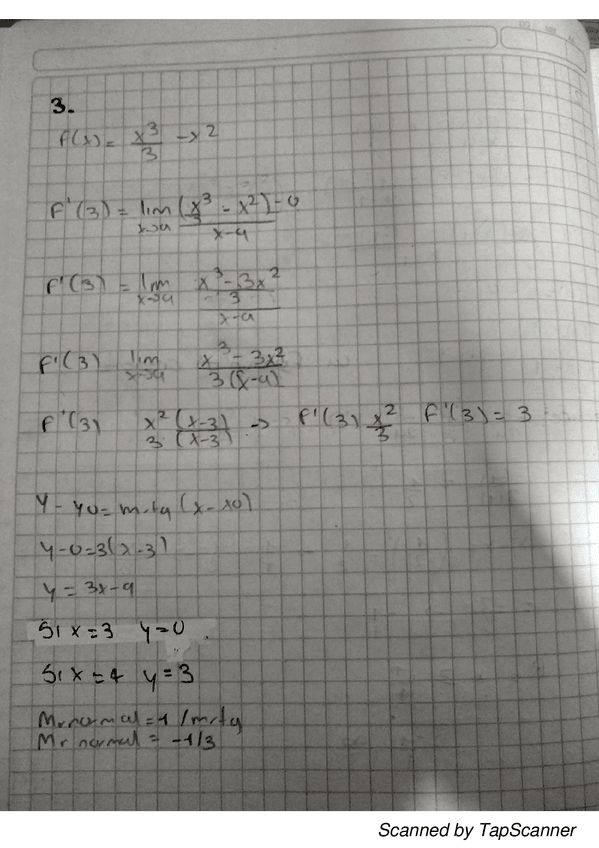 3.
F(x) = x³/3 -> 2
F'(3) = lim x->a (x³/3 - x²) - 0 / x-a
F'(3) = lim x->a x³-3x² / 3 / x-a
F'(3) lim x->a x³-3x² / 3(x-a)
F'(3) x²(x-3) / 3(x-3) -> F'(3) x²/3 F'(3) = 3
y - y0 = m-tg (x - x0)
y-0=3(x-3)
y = 3x-9
Si x=3 y=0
Si x=4 y=3
Mr normal = -1/mrtg
Mr normal = -1/3
Scanned by TapScanner